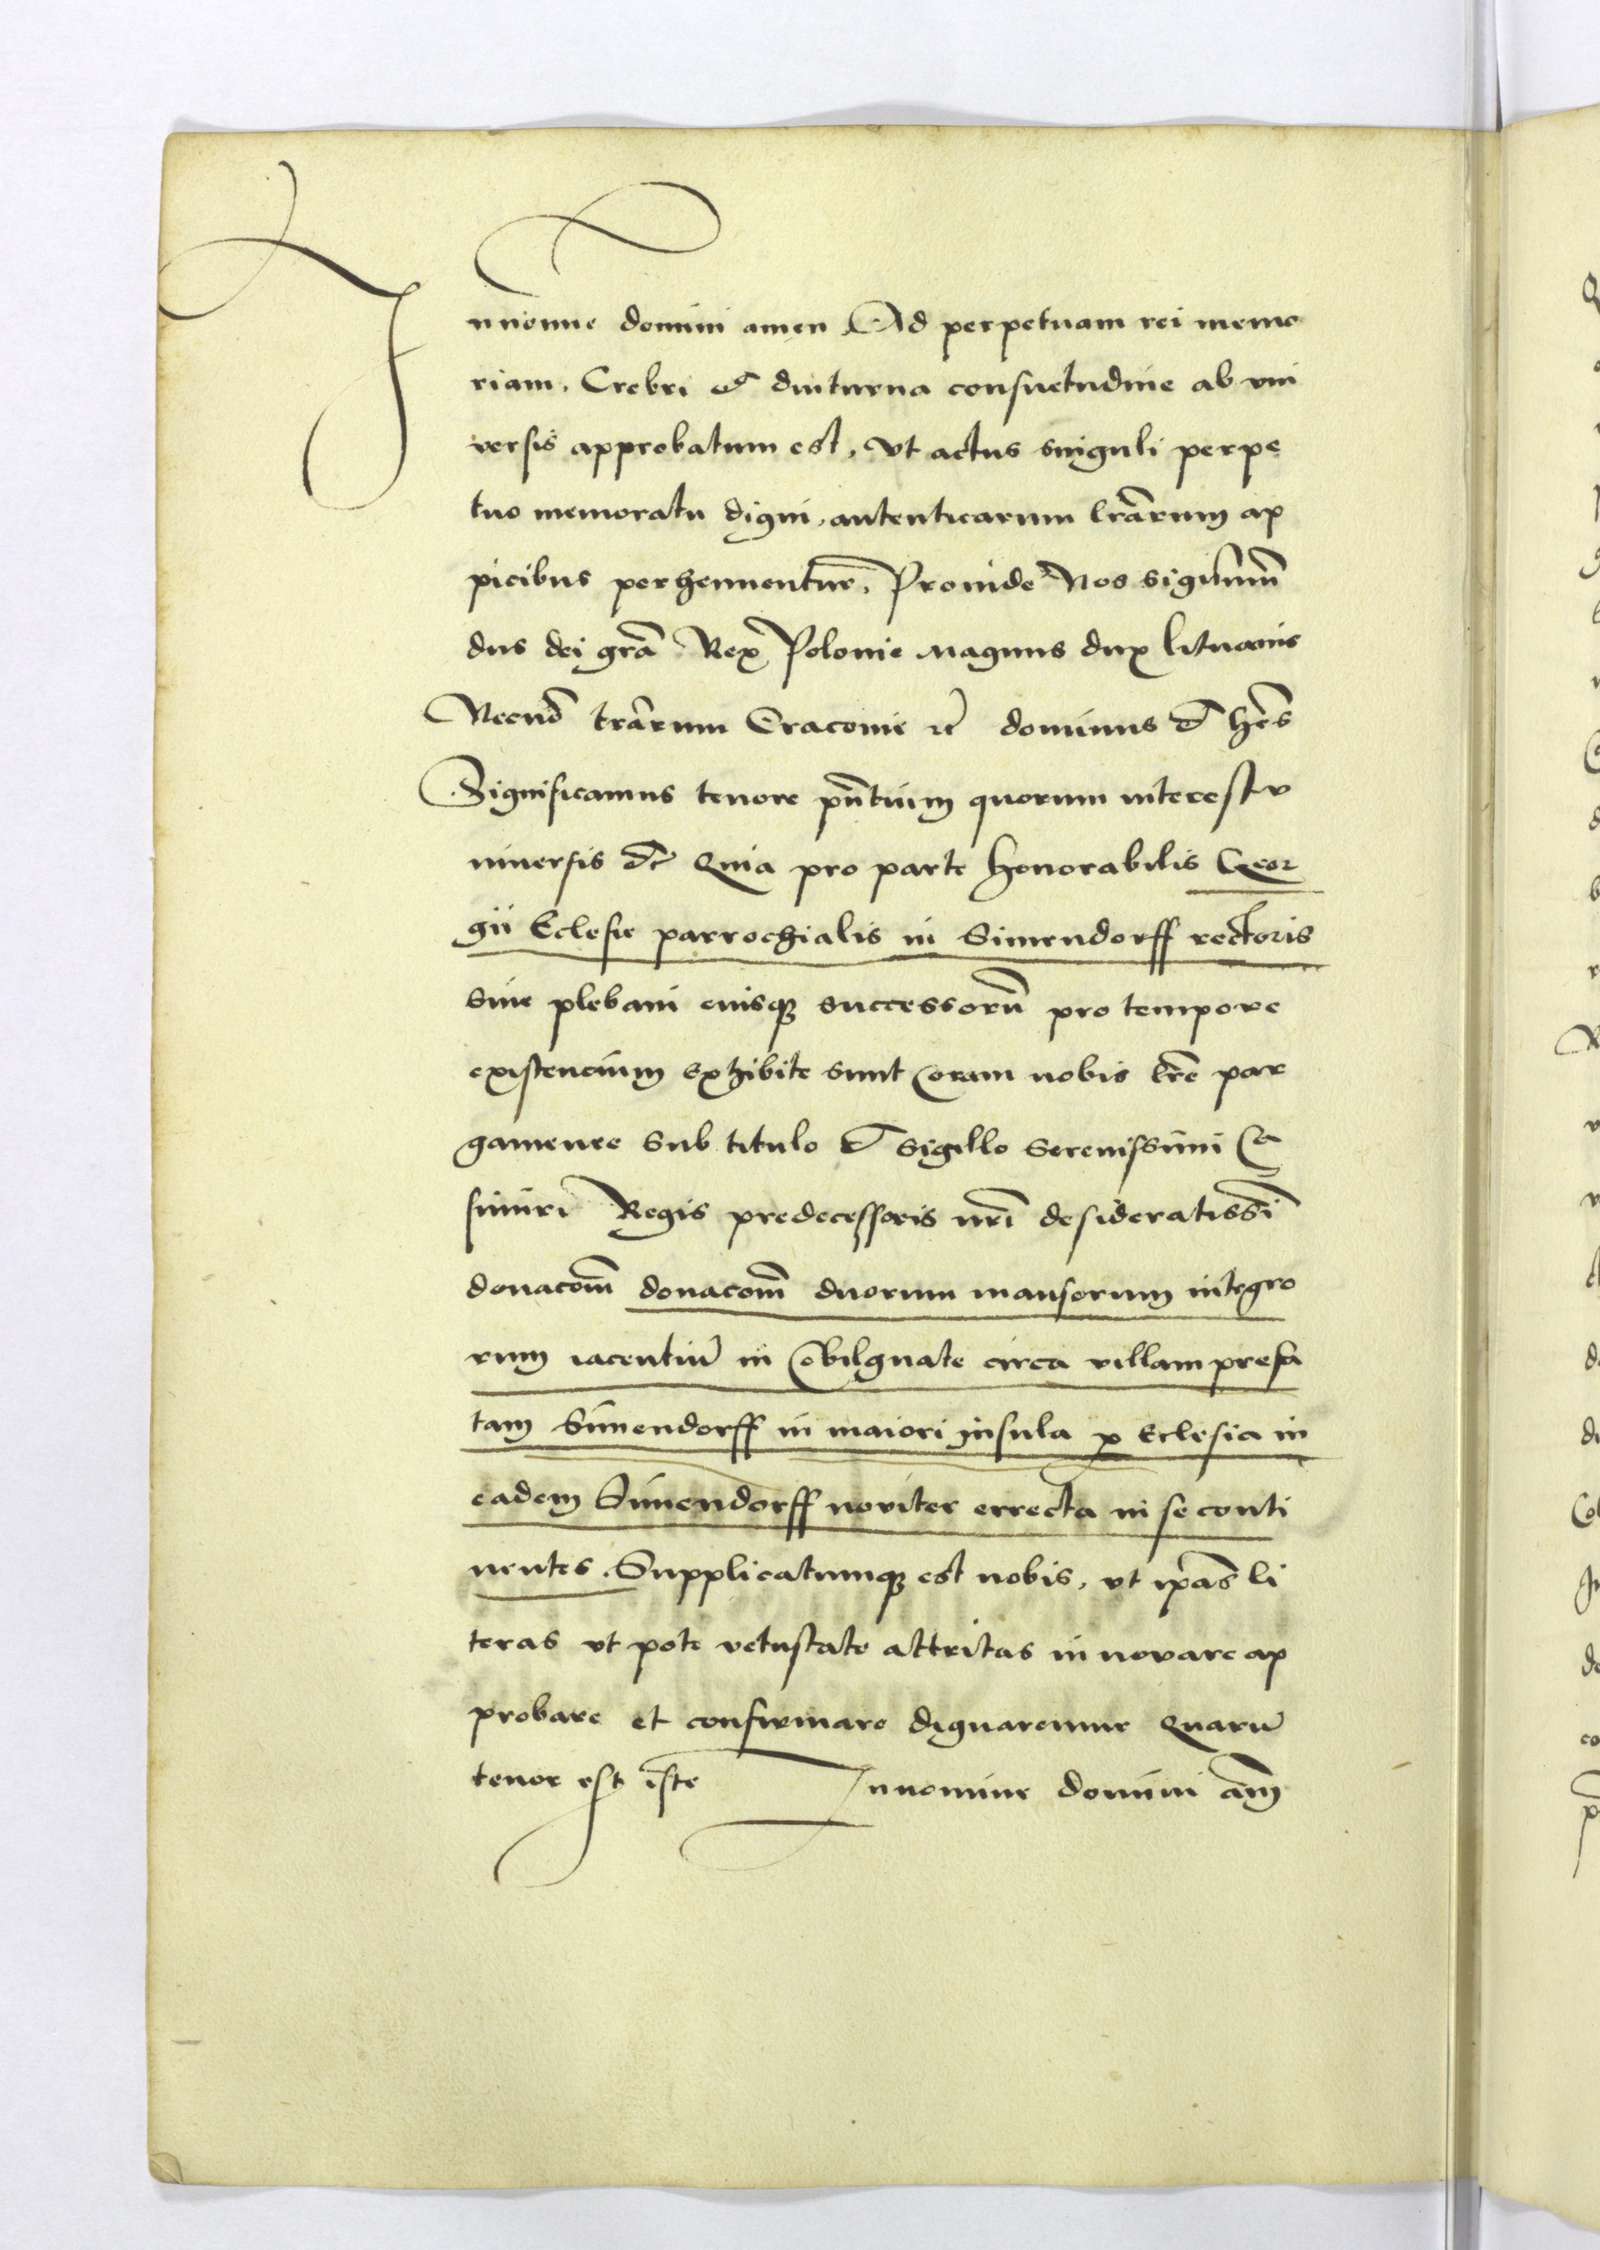 Jnnomine domini amen Ad perpetuam rei memo
riam. Crebri et diuturna consuetudine ab vni
versis approbatum est, vt actus singuli perpe
tuo memoratu digni, autenticarum lrãrum ap
picibus perhennentur. Proinde Nos sigismũ
dus dei grã Rex Polonie Magnus dux lituanie
Necnõ trãrum Cracouie ꝛc̃ dominus et hẽs
Significamus tenore pñtium quorum interest v
niuersis etc̃ Quia pro parte honorabilis Geor
gii Eclesie parrochialis in Simendorff rectoris
siue plebani eiusqꝫ successorũ pro tempore
existencium exhibite sunt coram nobis lrẽ par
gamenee sub titulo et sigillo serenissimi Ca
simiri Regis predecessoris nrĩ desideratissĩ
donacom̃ donacom̃ duorum mansorum integro
rum iacentiũ in obilgnate circa villam prefa
tam Simendorff in maiori insula p Eclesia in
eadem Simendorff noviter errecta in se conti
nentes. Supplicatumqꝫ est nobis, vt ip̃as li
teras vt pote vetustate attritas in novare ap
probare et confirmare dignaremur Quarũ
tenor est iste Jnnomine domini am̃